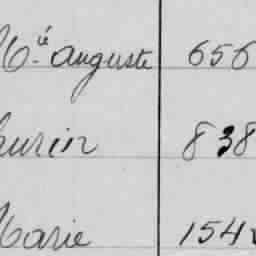 Mie Auguste 656
aurin 838
Marie 154